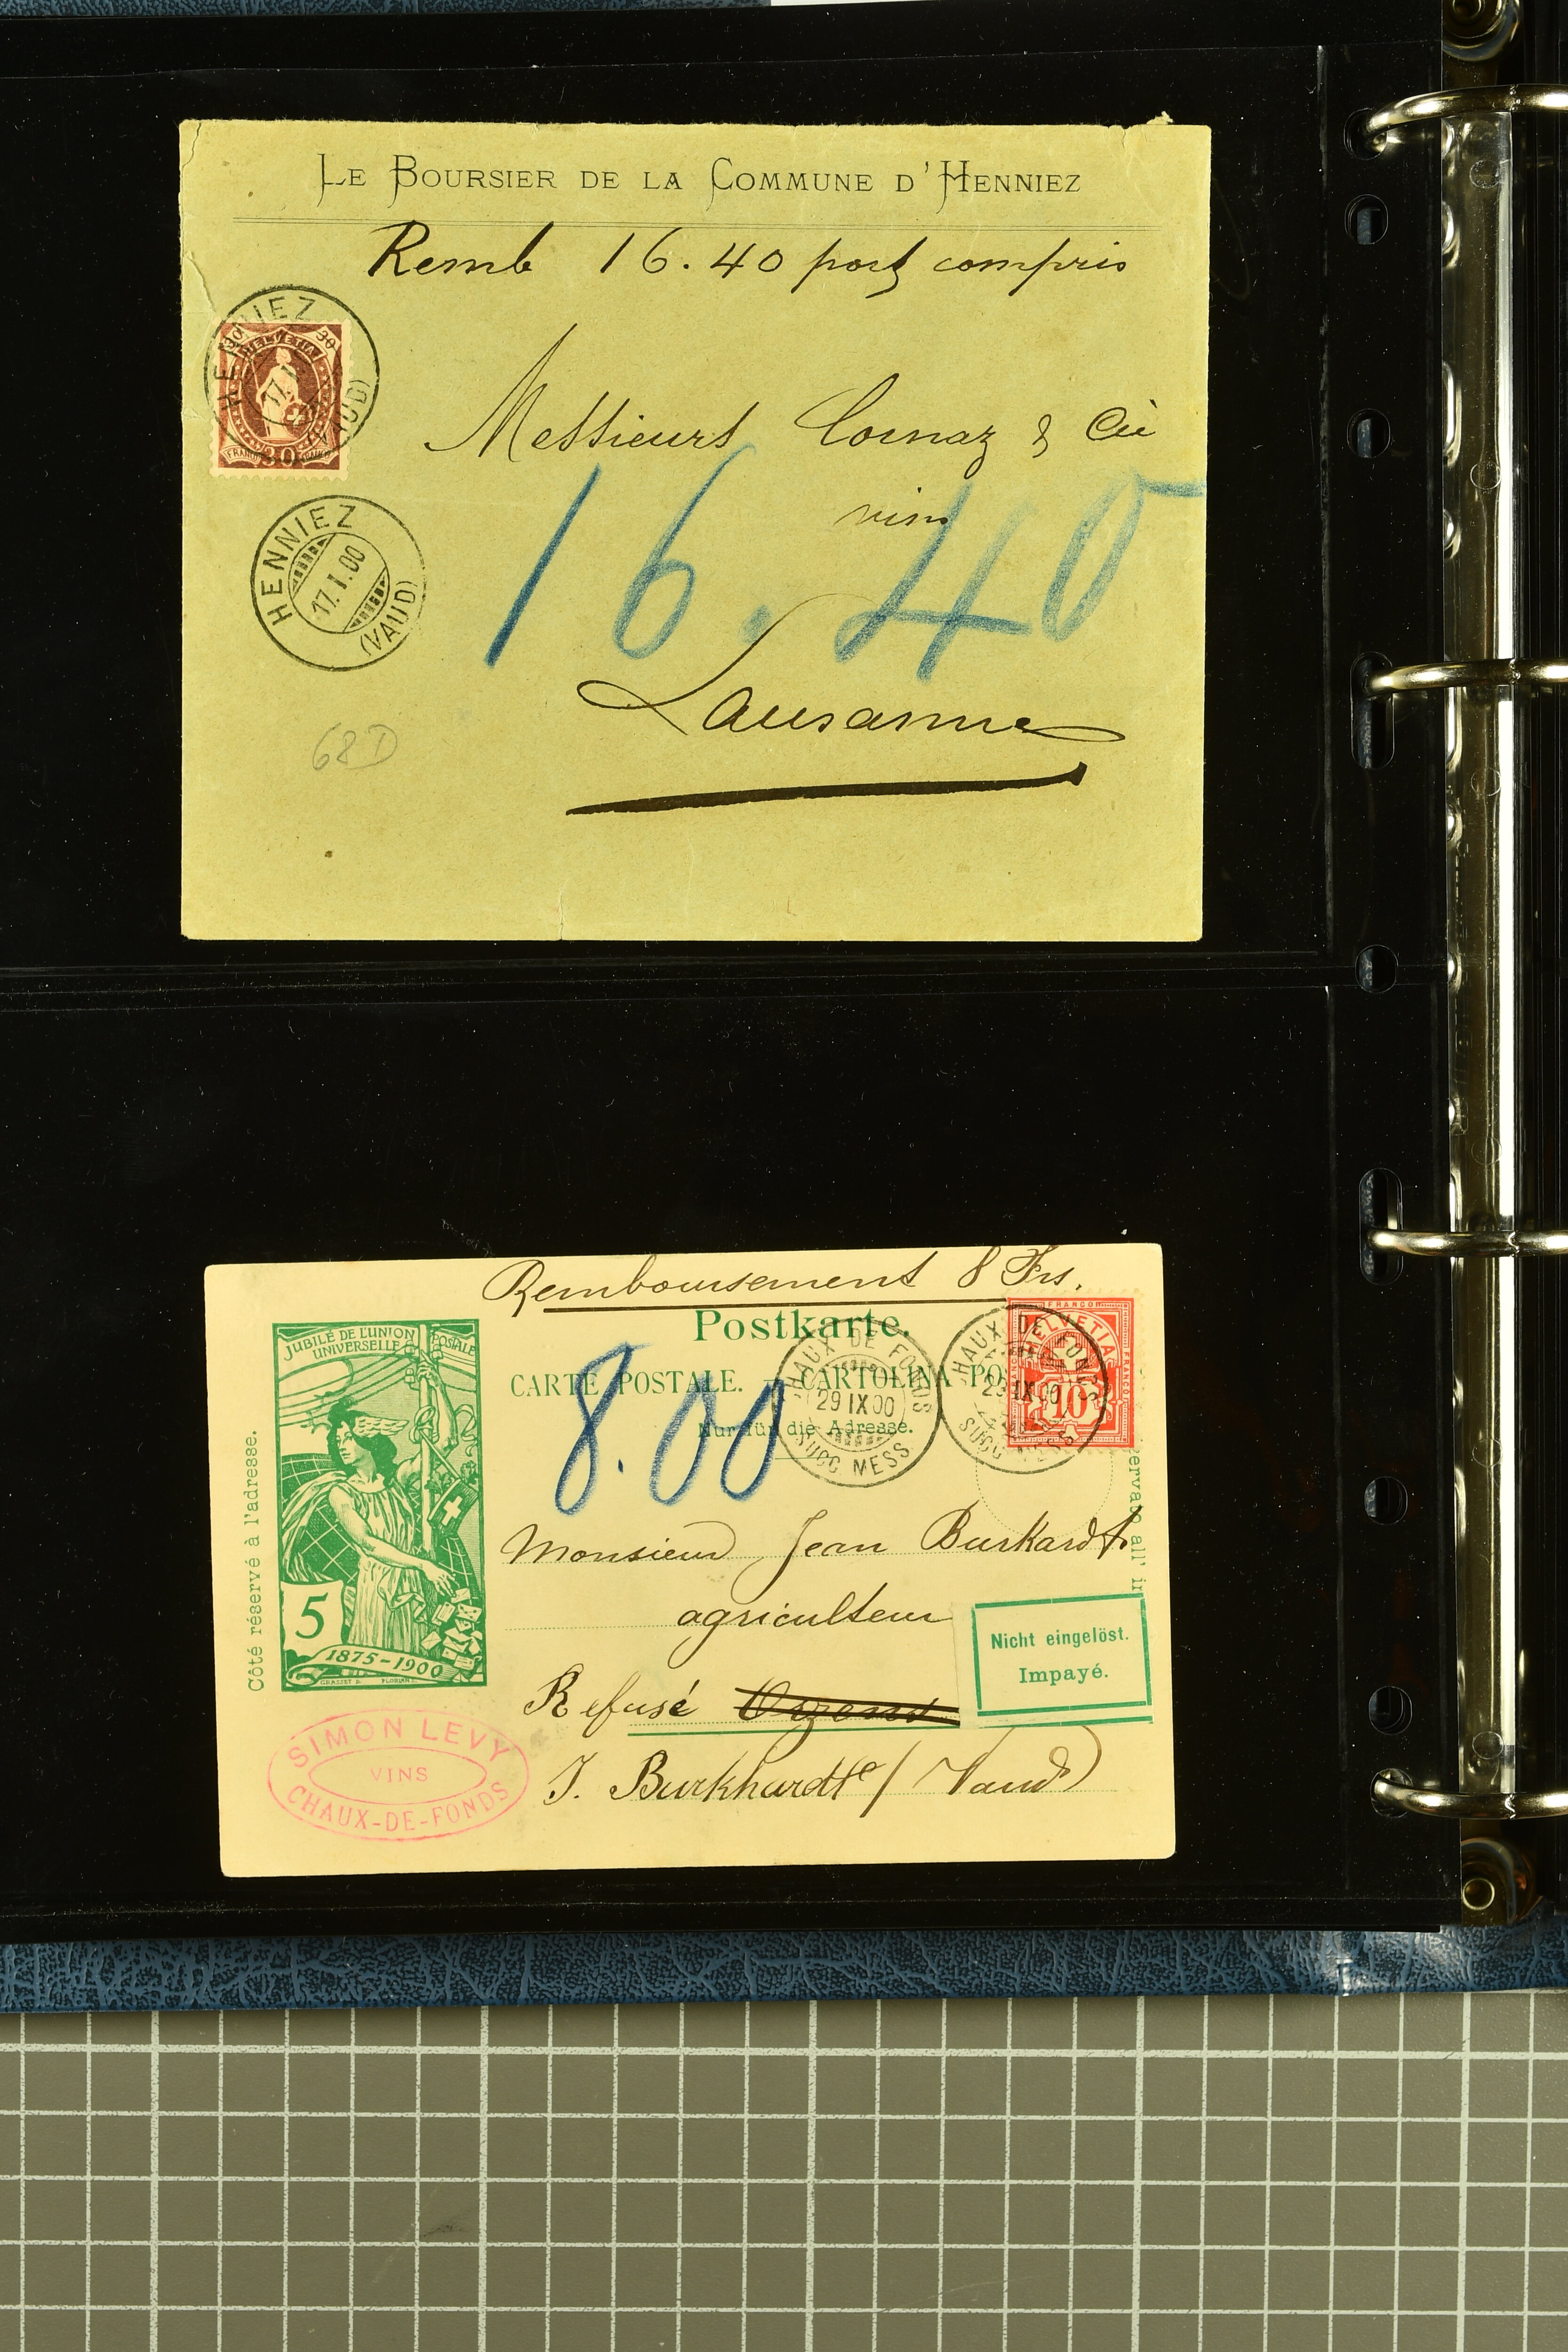 LE BOURSIER DE LA COMMUNE D'HENNIEZ
Remb 16.40 port compris
HENNIEZ
30 30
HELVETIA
17.I
(VAUD)
FRANCO 30 FRANKO
Messieurs Cornaz & Cie
vins
16.40
HENNIEZ
17.I.00
(VAUD)
Lausanne
68D
Remboursement 8 Frs.
Postkarte.
CARTE POSTALE. — CARTOLINA PO
Nur für die Adresse.
8.00
JUBILÉ DE L'UNION POSTALE
UNIVERSELLE
5
1875-1900
GRASSET D. FLORIAN
Côté réservé à l'adresse.
HAUX-DE-FONDS
29 IX 00
SUCC. MESS
HAUX-DE-FONDS
29 IX 00
SUCC.
FRANCO
HELVETIA
10
ervato all' in
Monsieur Jean Burkardt
agriculteur
Nicht eingelöst.
Impayé.
Refusé
J. Burkhardt / Vaud)
SIMON LEVY
VINS
CHAUX-DE-FONDS